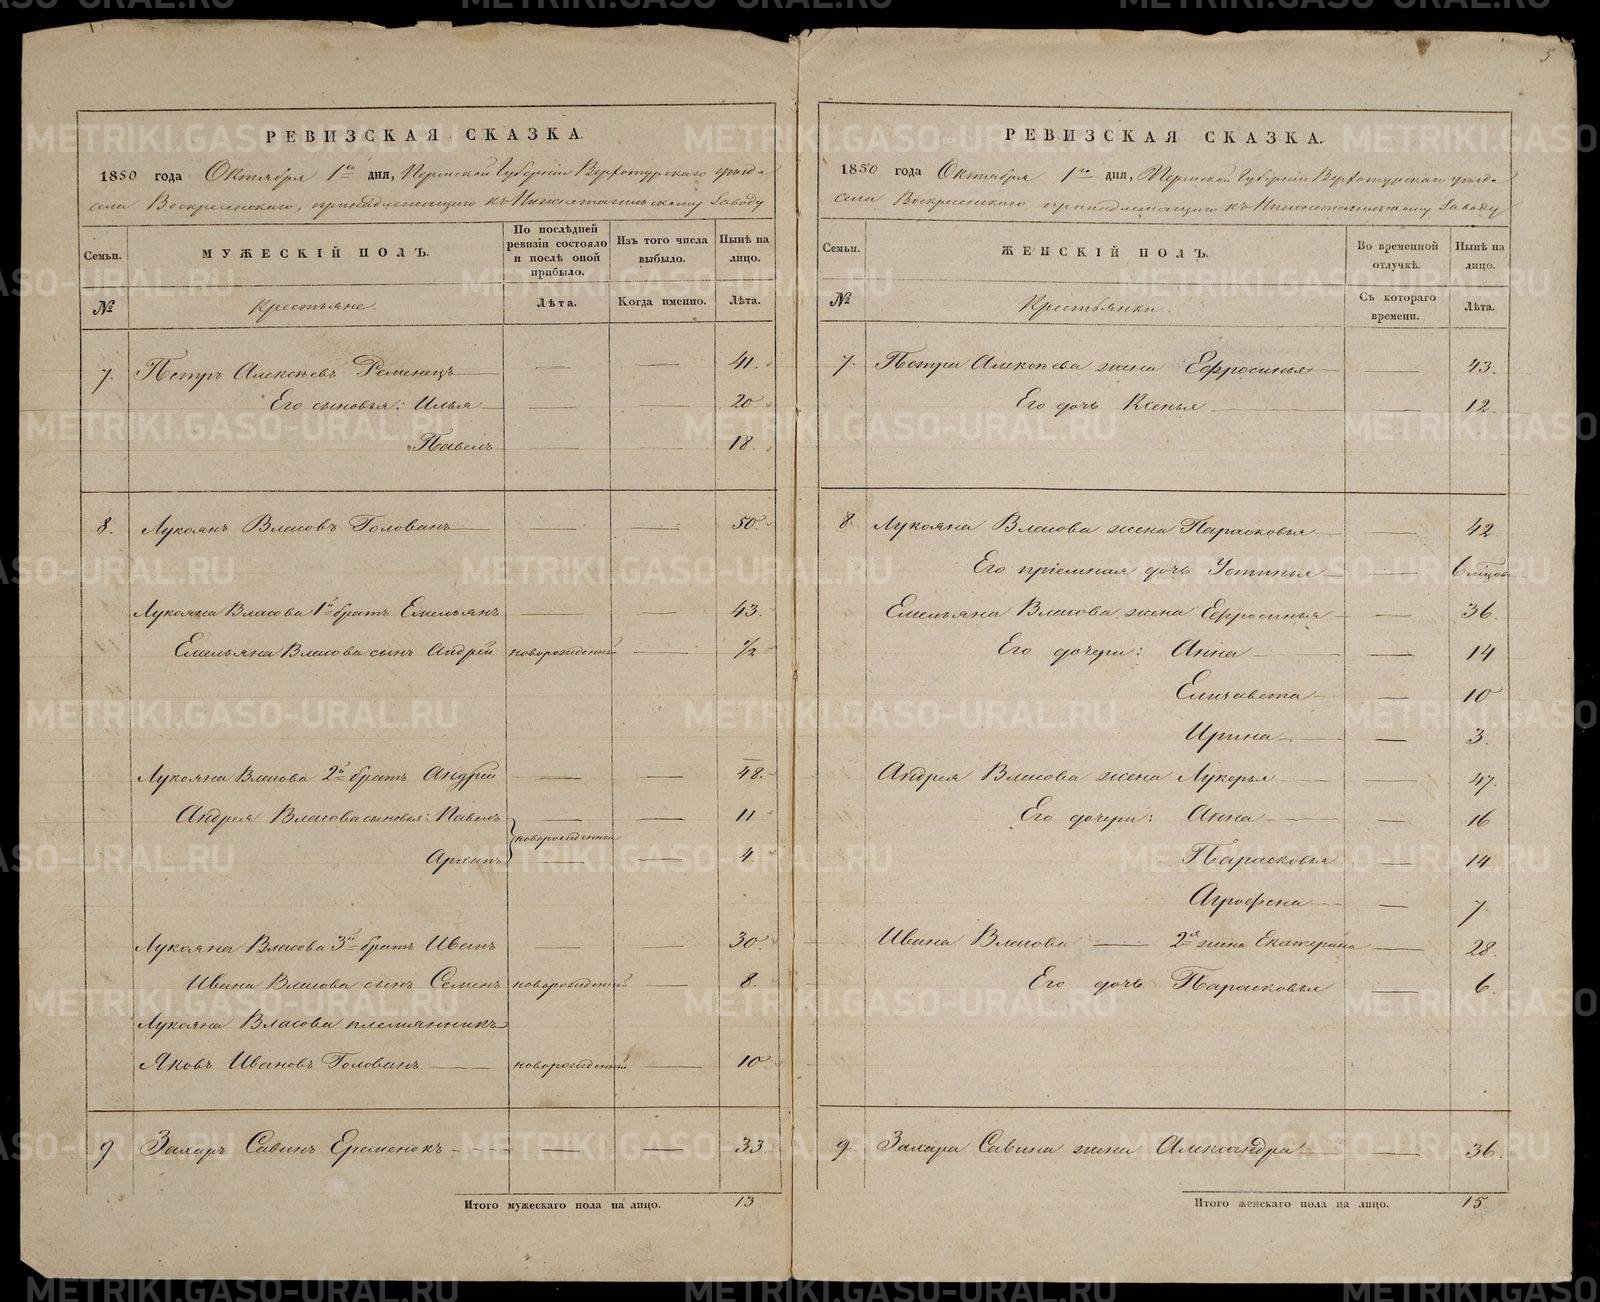 5
РЕВИЗСКАЯ СКАЗКА.
1850 года Октября 1го дня, Пермской Губерніи Верхотурскаго уѣзда
села Воскресенскаго, принадлежащаго къ Нижнетагильскому Заводу
Семьи. МУЖЕСКІЙ ПОЛЪ. По послѣдней ревизіи состояло и послѣ оной прибыло. Изъ того числа выбыло. Нынѣ на лицо.
№ Крестьяне. Лѣта. Когда именно. Лѣта.
7. Петръ Алексѣевъ Ременецъ — — 41.
Его сыновья: Илья — — 20
Павелъ — — 18.
8. Лукоянъ Власовъ Голованъ — — 50.
Лукояна Власова 1й братъ Емельянъ — — 43.
Емельяна Власова сынъ Андрей новорожденный — 1/2
Лукояна Власова 2й братъ Андрей — — 48.
Андрея Власова сыновья: Павелъ — — 11
новорожденныи
Архипъ — — 4
Лукояна Власова 3й братъ Иванъ — — 30.
Ивана Власова сынъ Семенъ новорожденный — 8.
Лукояна Власова племянникъ
Яковъ Ивановъ Голованъ — новорожденный — 10
9 Захаръ Савинъ Еременокъ — — 33.
Итого мужескаго пола на лицо. 13
РЕВИЗСКАЯ СКАЗКА.
1850 года Октября 1го дня, Пермской Губерніи Верхотурскаго уѣзда
села Воскресенскаго принадлежащаго къ Нижнетагильскому Заводу
Семьи. ЖЕНСКІЙ ПОЛЪ. Во временной отлучкѣ. Нынѣ на лицо.
№ Крестьянки. Съ котораго времени. Лѣта.
7. Петра Алексѣева жена Ефросинья — 43.
Его дочь Ксенья — 12.
8 Лукояна Власова жена Парасковья — 42
Его пріемная дочь Устинья — 6 мѣсяц
Емельяна Власова жена Ефросинья — 36
Его дочери: Анна — 14
Елисавета — 10
Ирина — 3.
Андрея Власова жена Лукерья — 47.
Его дочери: Анна — 16
Парасковья — 14
Агрофена — 7.
Ивана Власова — 2я жена Екатерина — 28.
Его дочь Парасковья — 6.
9. Захара Савина жена Александра — 36.
Итого женскаго пола на лицо. 15.
METRIKI.GASO-URAL.RU